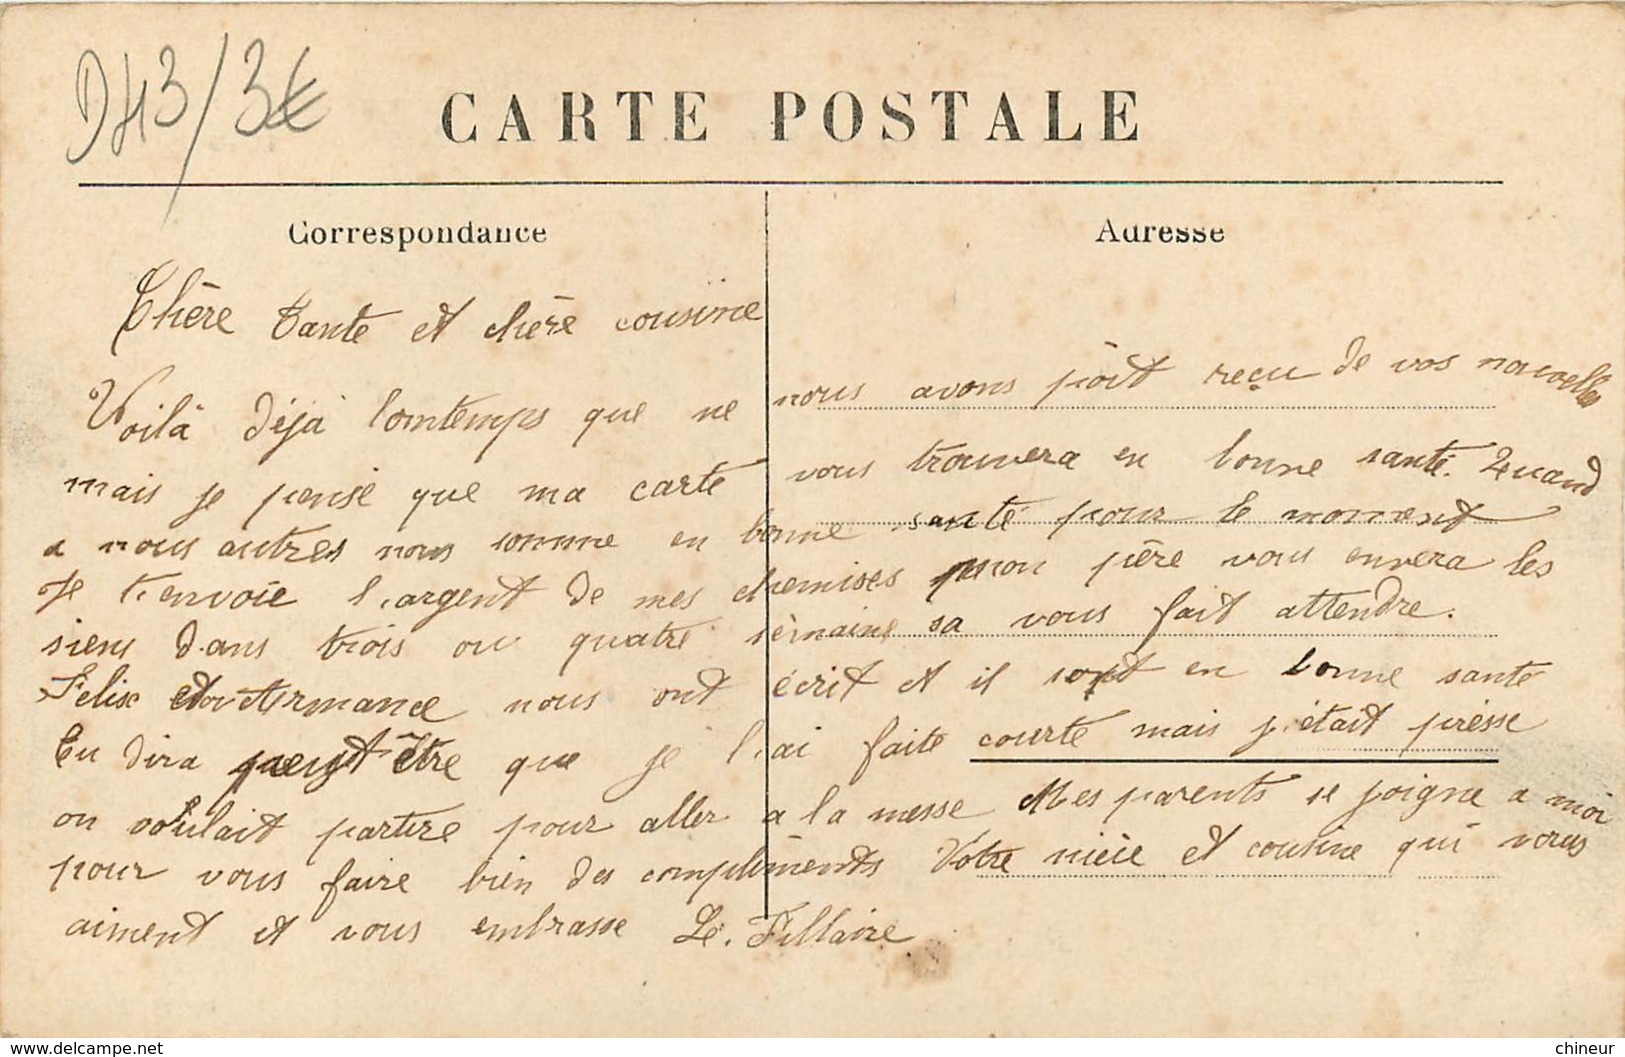 D43/3€
CARTE POSTALE
Correspondance
Adresse
Chère tante et chère cousine
Voilà déjà lomtemps que ne nous avons poit reçu de vos nouvelles
mais je pense que ma carte vous trouvera en bonne santé. Quand
a nous autres nous somme en bonne santé pour le moment
Je t'envoie l'argent de mes chemises mon père vous envera les
siens dans trois ou quatre semaine sa vous fait attendre.
Felix et Germance nous ont écrit et il sont en bonne santé
tu dira peut être que je l'ai faite courte mais j'était presse
on voulait partire pour aller a la messe Mes parents se joigne a moi
pour vous faire bien des compliments Votre nièce et cousine qui vous
aiment et vous embrasse Le. Fillaire
www.delcampe.net
chineur